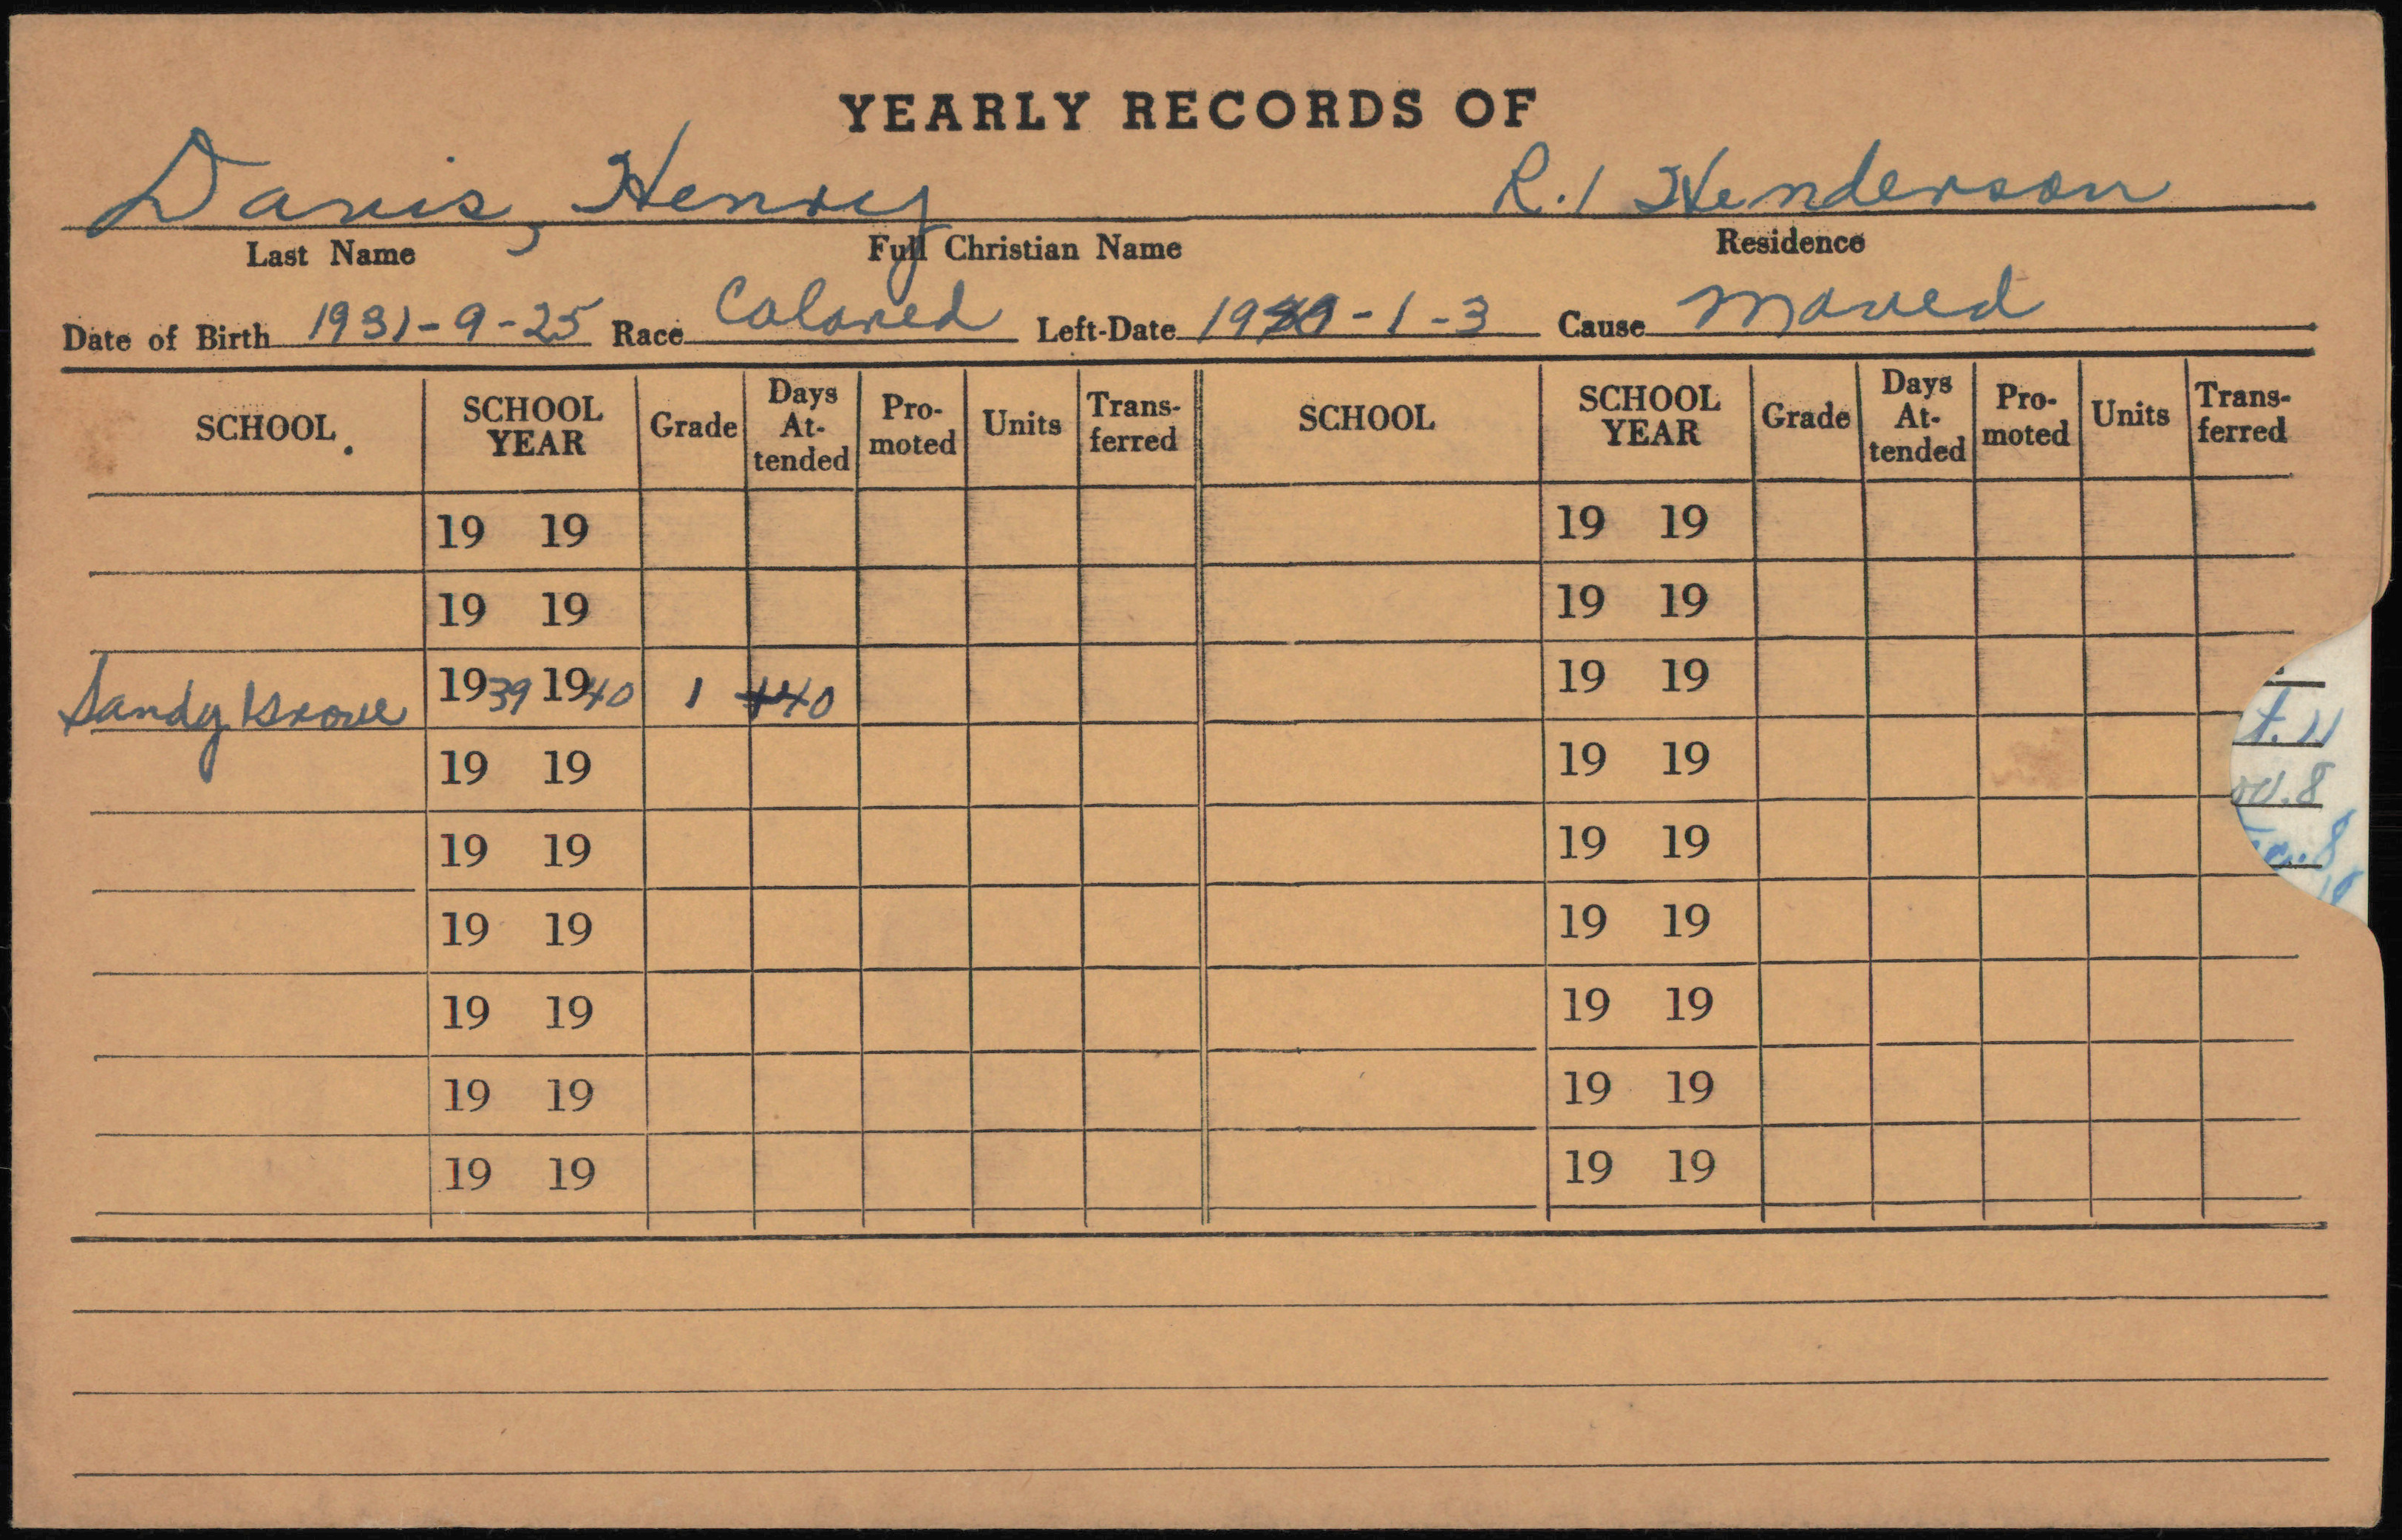 YEARLY RECORDS OF
Davis, Henry R.1 Henderson
Last Name Full Christian Name Residence
Date of Birth 1931-9-25 Race Colored Left-Date 1940-1-3 Cause Moved
SCHOOL. SCHOOL YEAR Grade Days At-tended Pro-moted Units Trans-ferred SCHOOL SCHOOL YEAR Grade Days At-tended Pro-moted Units Trans-ferred
19 19 19 19
19 19 19 19
Sandy Grove 1939 1940 1 40 19 19
t. 11
19 19 19 19
ov. 8
19 19 19 19
19 19 19 19
19 19 19 19
19 19 19 19
19 19 19 19